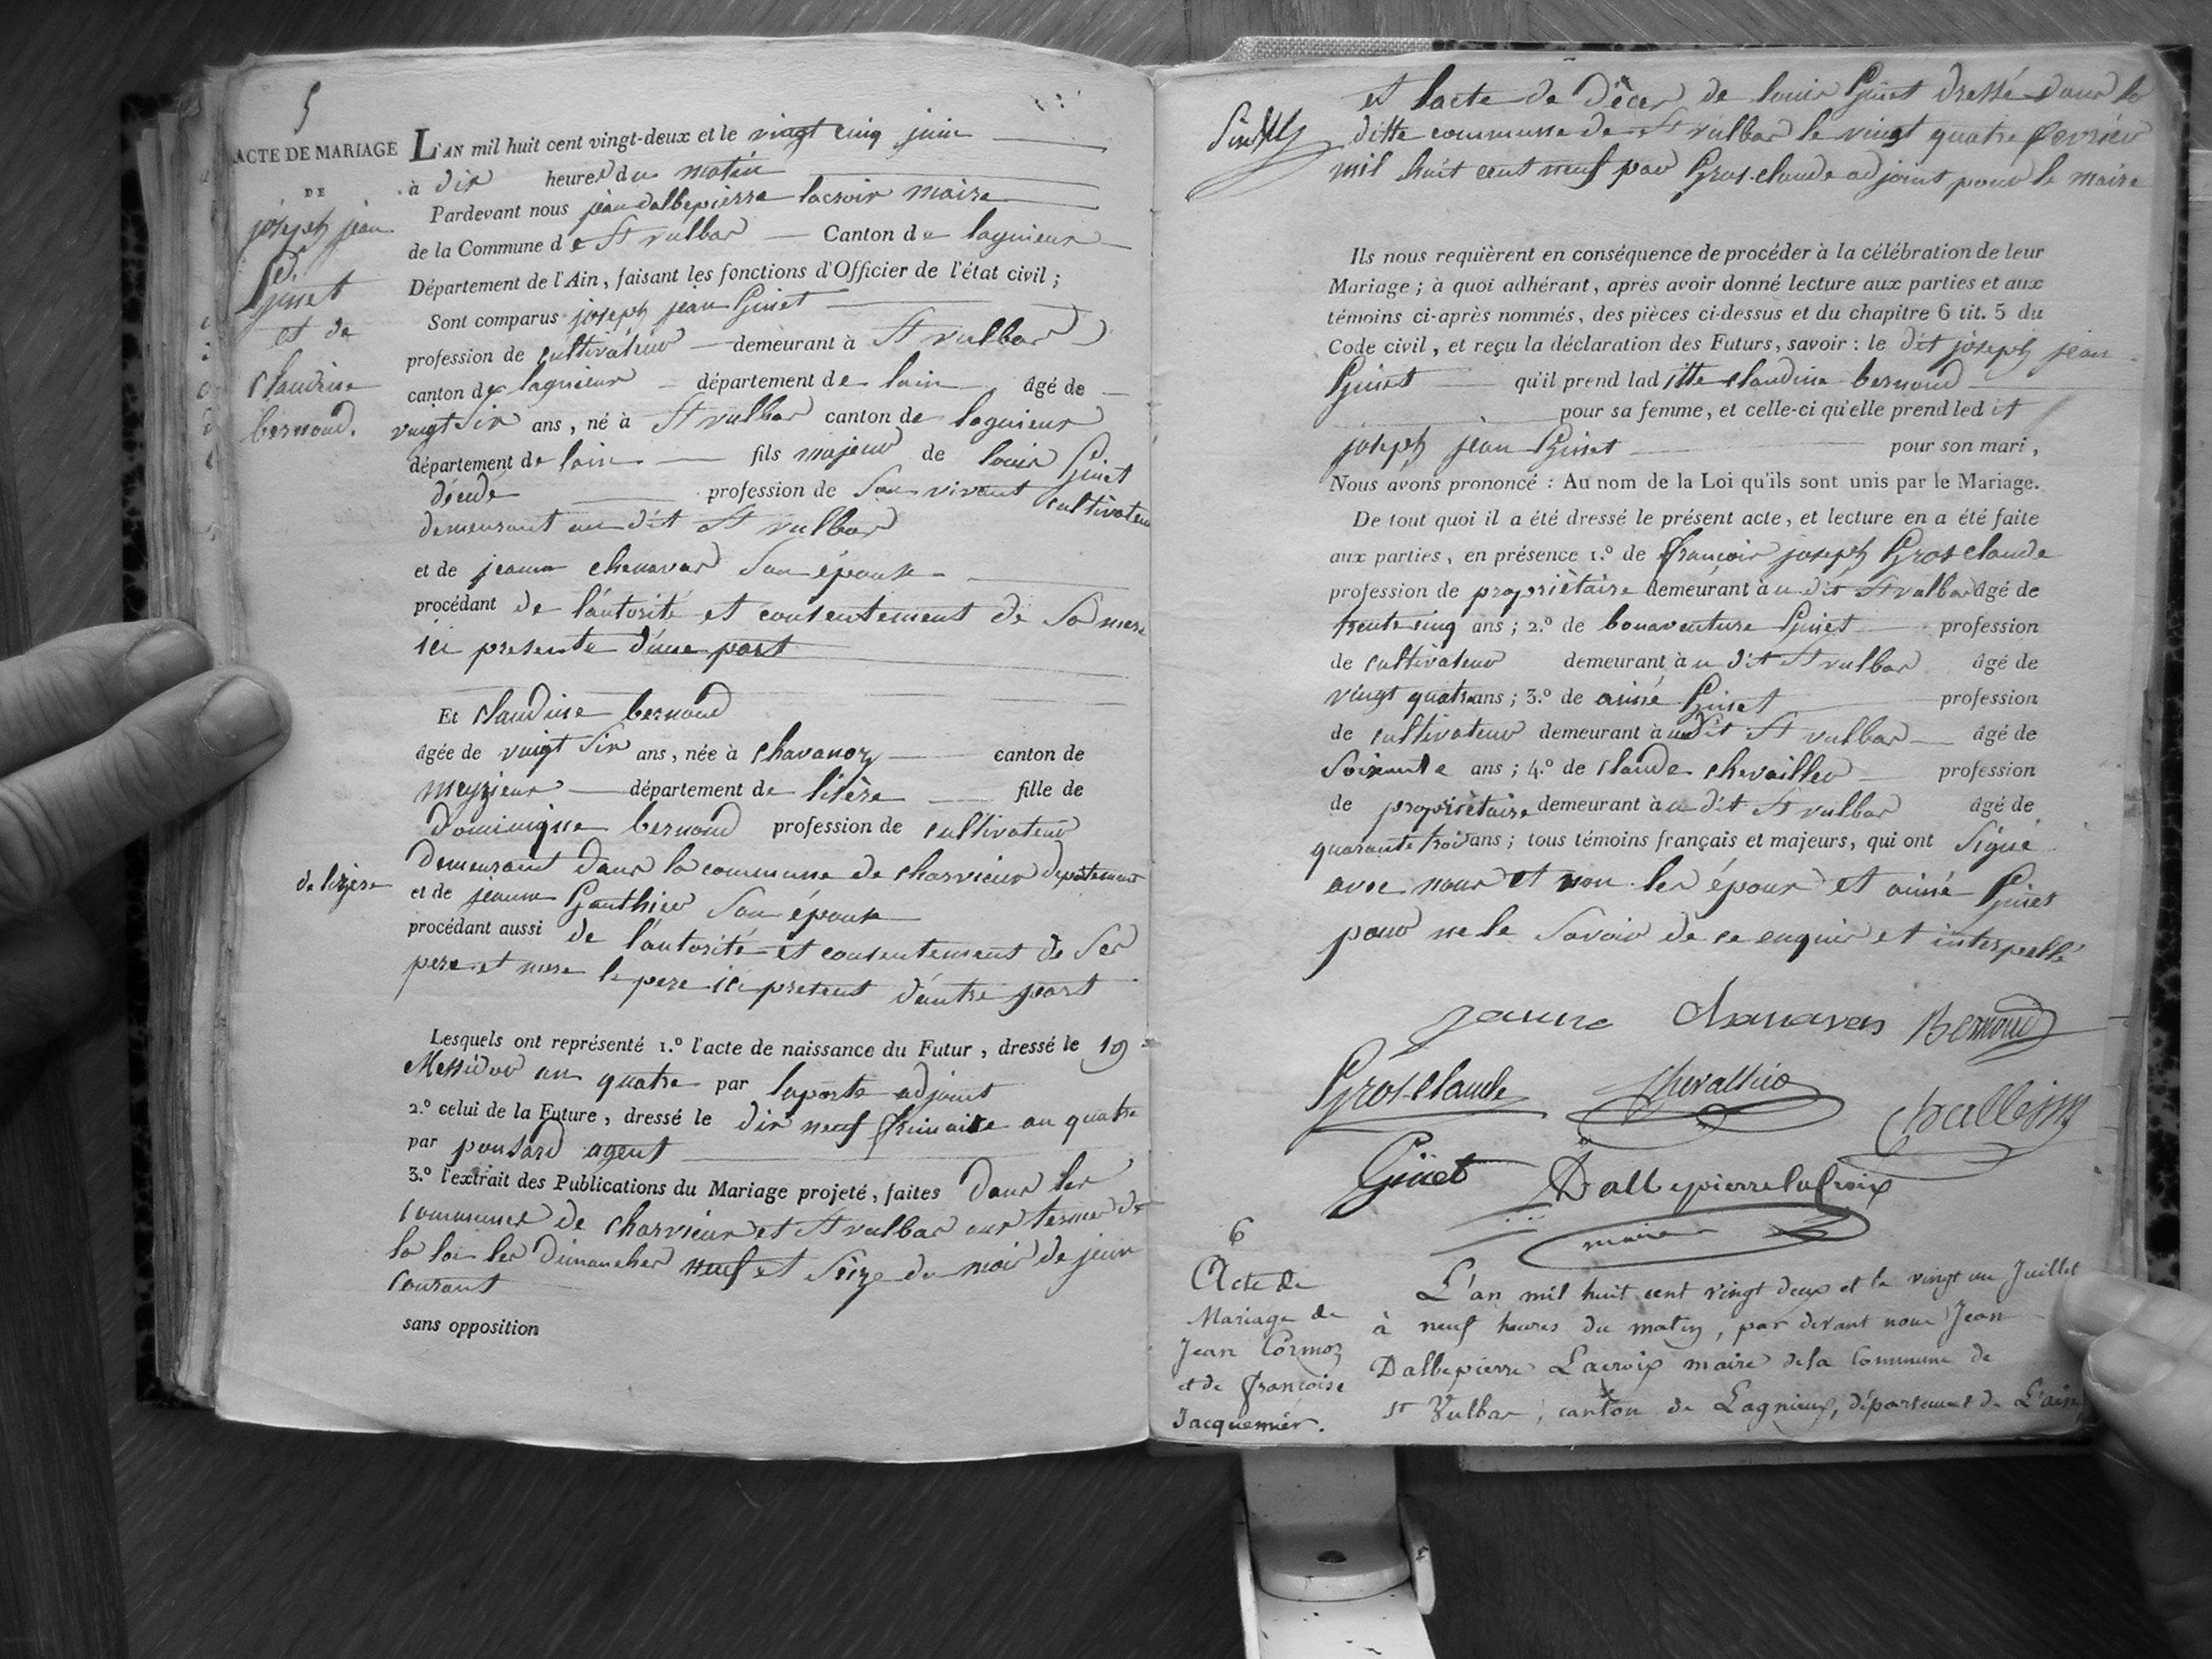 5
ACTE DE MARIAGE
DE
joseph jean
Ginet
et de
Claudine
bernoud.
L'AN mil huit cent vingt-deux et le vingt cinq juin
à dix heures du matin
Pardevant nous jean dallepierre lacroix maire
de la Commune de St vulbas Canton de lagnieux
Département de l'Ain, faisant les fonctions d'Officier de l'état civil ;
Sont comparus joseph jean Ginet
profession de cultivateur demeurant à St vulbas
canton de lagnieux département de lain âgé de
vingt six ans, né à St vulbas canton de lagnieux
département de lain fils majeur de louis Ginet
décédé profession de son vivant cultivateur
demeurant au dit St vulbas
et de jeanne chanavas son épouse
procédant de l'autorité et consentement de sa mere
ici presente d'une part
Et claudine bernoud
âgée de vingt six ans, née à chavanoz canton de
meyzieux département de lisère fille de
dominique bernoud profession de cultivateur
demeurant dans la commune de charvieux departement
de lizere
et de jeanne Gauthier son épouse
procédant aussi de l'autorité et consentement de ses
pere et mere le pere ici present d'autre part
Lesquels ont représenté 1.º l'acte de naissance du Futur, dressé le 19
Messidor an quatre par laporte adjoint
2.º celui de la Future, dressé le dix neuf frimaire an quatre
par ponsard agent
3.º l'extrait des Publications du Mariage projeté, faites dans les
communes de charvieux et St vulbas aux termes de
la loi les dimanches neuf et seize du mois de juin
courant
sans opposition
et lacte de décès de louis Ginet dressé dans la
ditte commune de St vulbas le vingt quatre fevrier
mil huit cent neuf par Gros-claude adjoint pour le maire
Ils nous requièrent en conséquence de procéder à la célébration de leur
Mariage ; à quoi adhérant, après avoir donné lecture aux parties et aux
témoins ci-après nommés, des pièces ci-dessus et du chapitre 6 tit. 5 du
Code civil, et reçu la déclaration des Futurs, savoir : le dit joseph jean
Ginet qu'il prend laditte claudine bernoud
pour sa femme, et celle-ci qu'elle prend ledit
joseph jean Ginet pour son mari,
Nous avons prononcé : Au nom de la Loi qu'ils sont unis par le Mariage.
De tout quoi il a été dressé le présent acte, et lecture en a été faite
aux parties, en présence 1.º de françois joseph Gros claude
profession de propriètaire demeurant à u dit St vulbas âgé de
trente cinq ans ; 2.º de bonaventure Ginet profession
de cultivateur demeurant à u dit St vulbas âgé de
vingt quatre ans ; 3.º de aimé Ginet profession
de cultivateur demeurant à u dit St vulbas âgé de
soixante ans ; 4.º de claude chevaillier profession
de propriètaire demeurant à u dit St vulbas âgé de
quarante trois ans ; tous témoins français et majeurs, qui ont signé
avec nous et non les époux et aimé Ginet
pour ne le savoir de ce enquis et interpellé
Jeanne chanavas Bernoud
Gros-claude chevallier
Ginet Dallepierre lacroix
maire
6
Acte de
Mariage de
Jean Cormoz
et de françoise
Jacquemier.
L'an mil huit cent vingt deux et le vingt un Juillet
à neuf heures du matin, par devant nous Jean
Dallepierre Lacroix maire de la Commune de
St Vulbas, canton de Lagnieux, département de L'ain,